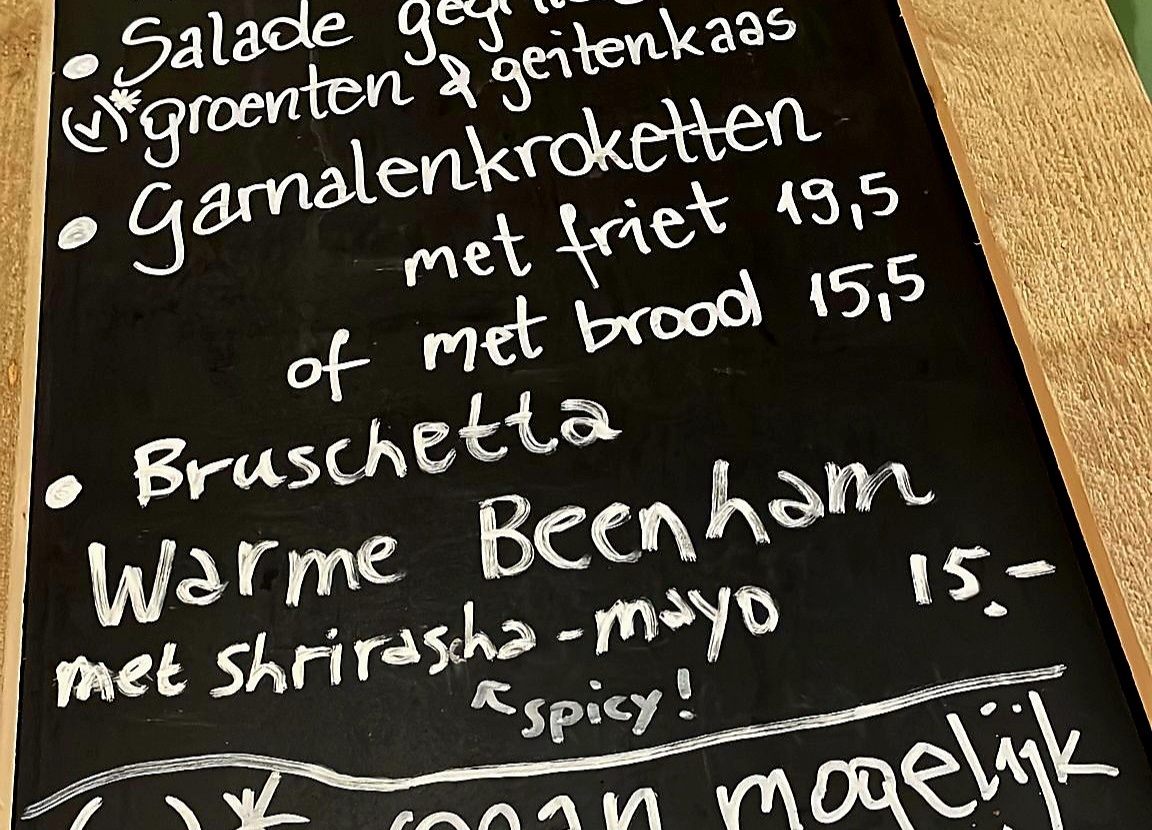 • Salade
(v)* groenten & geitenkaas
• Garnalenkroketten
met friet 19,5
of met brood 15,5
• Bruschetta
Warme Beenham
met Shrirascha-mayo 15.-
↖ spicy!
mogelijk